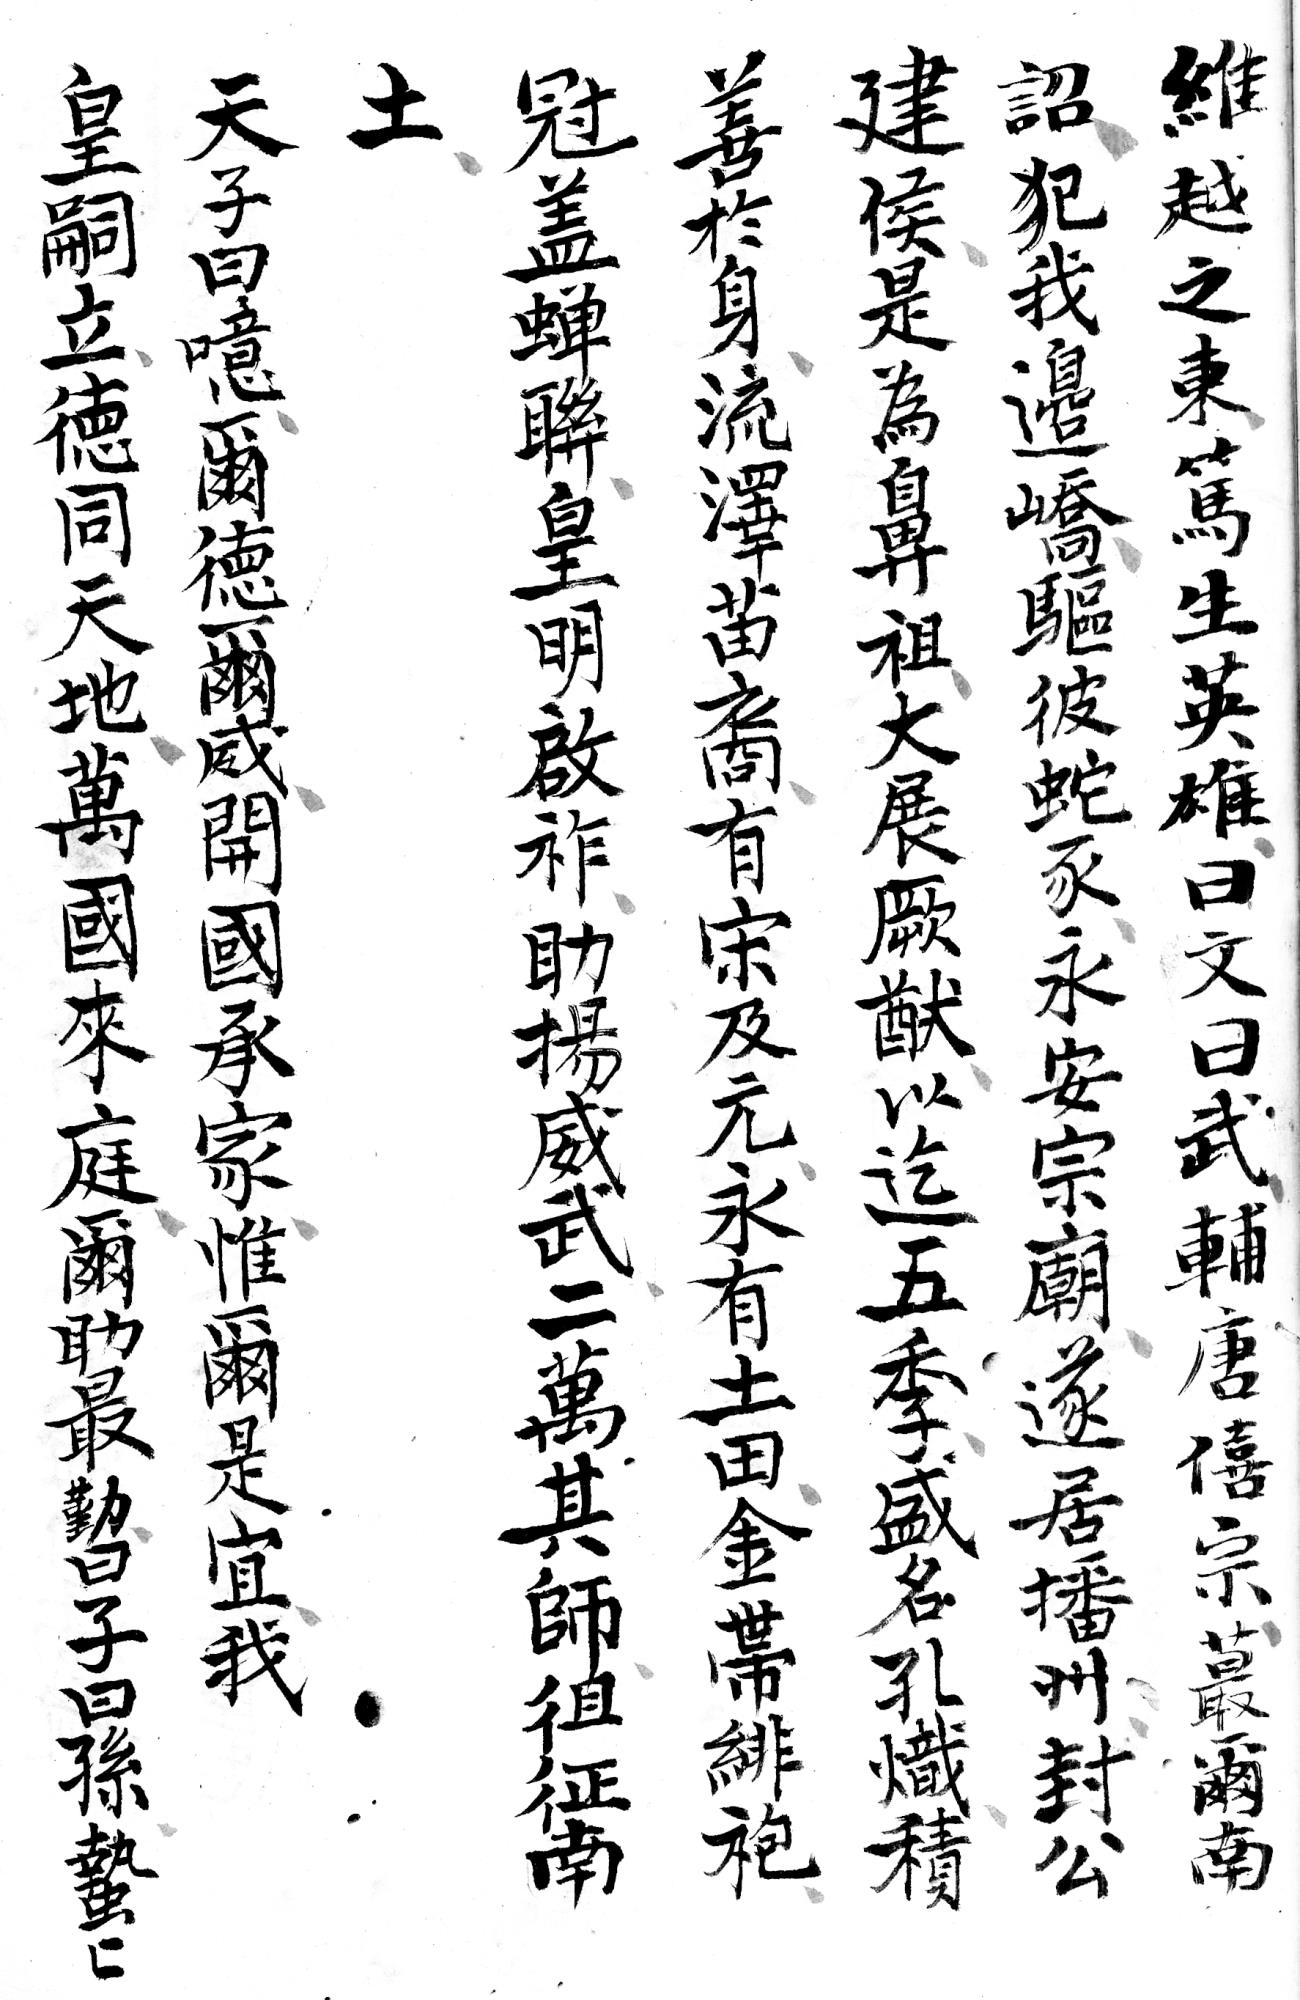 維越之東篤生英雄曰文曰武輔唐僖宗蕞爾南
詔犯我邊嶠驅彼蛇豕永安宗廟遂居播州封公
建侯是為鼻祖大展厥猷以迄五季盛名孔熾積
善於身流澤苗裔有宋及元永有土田金帶緋袍
冠盖蟬聯皇明啟祚助揚威武二萬其師徂征南
土
天子曰噫爾德爾威開國承家惟爾是宜我
皇嗣立德同天地萬國來庭爾助最勤曰子曰孫蟄〻